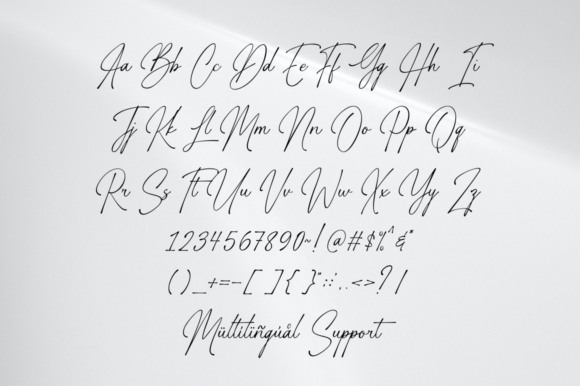 Aa Bb Cc Dd Ee Ff Gg Hh Ii
Jj Kk Ll Mm Nn Oo Pp Qq
Rr Ss Tt Uu Vv Ww Xx Yy Zz
1234567890~!@#$%^&*
()_+=-[]{}":;,.<>?/
Mültilïñgúål Support